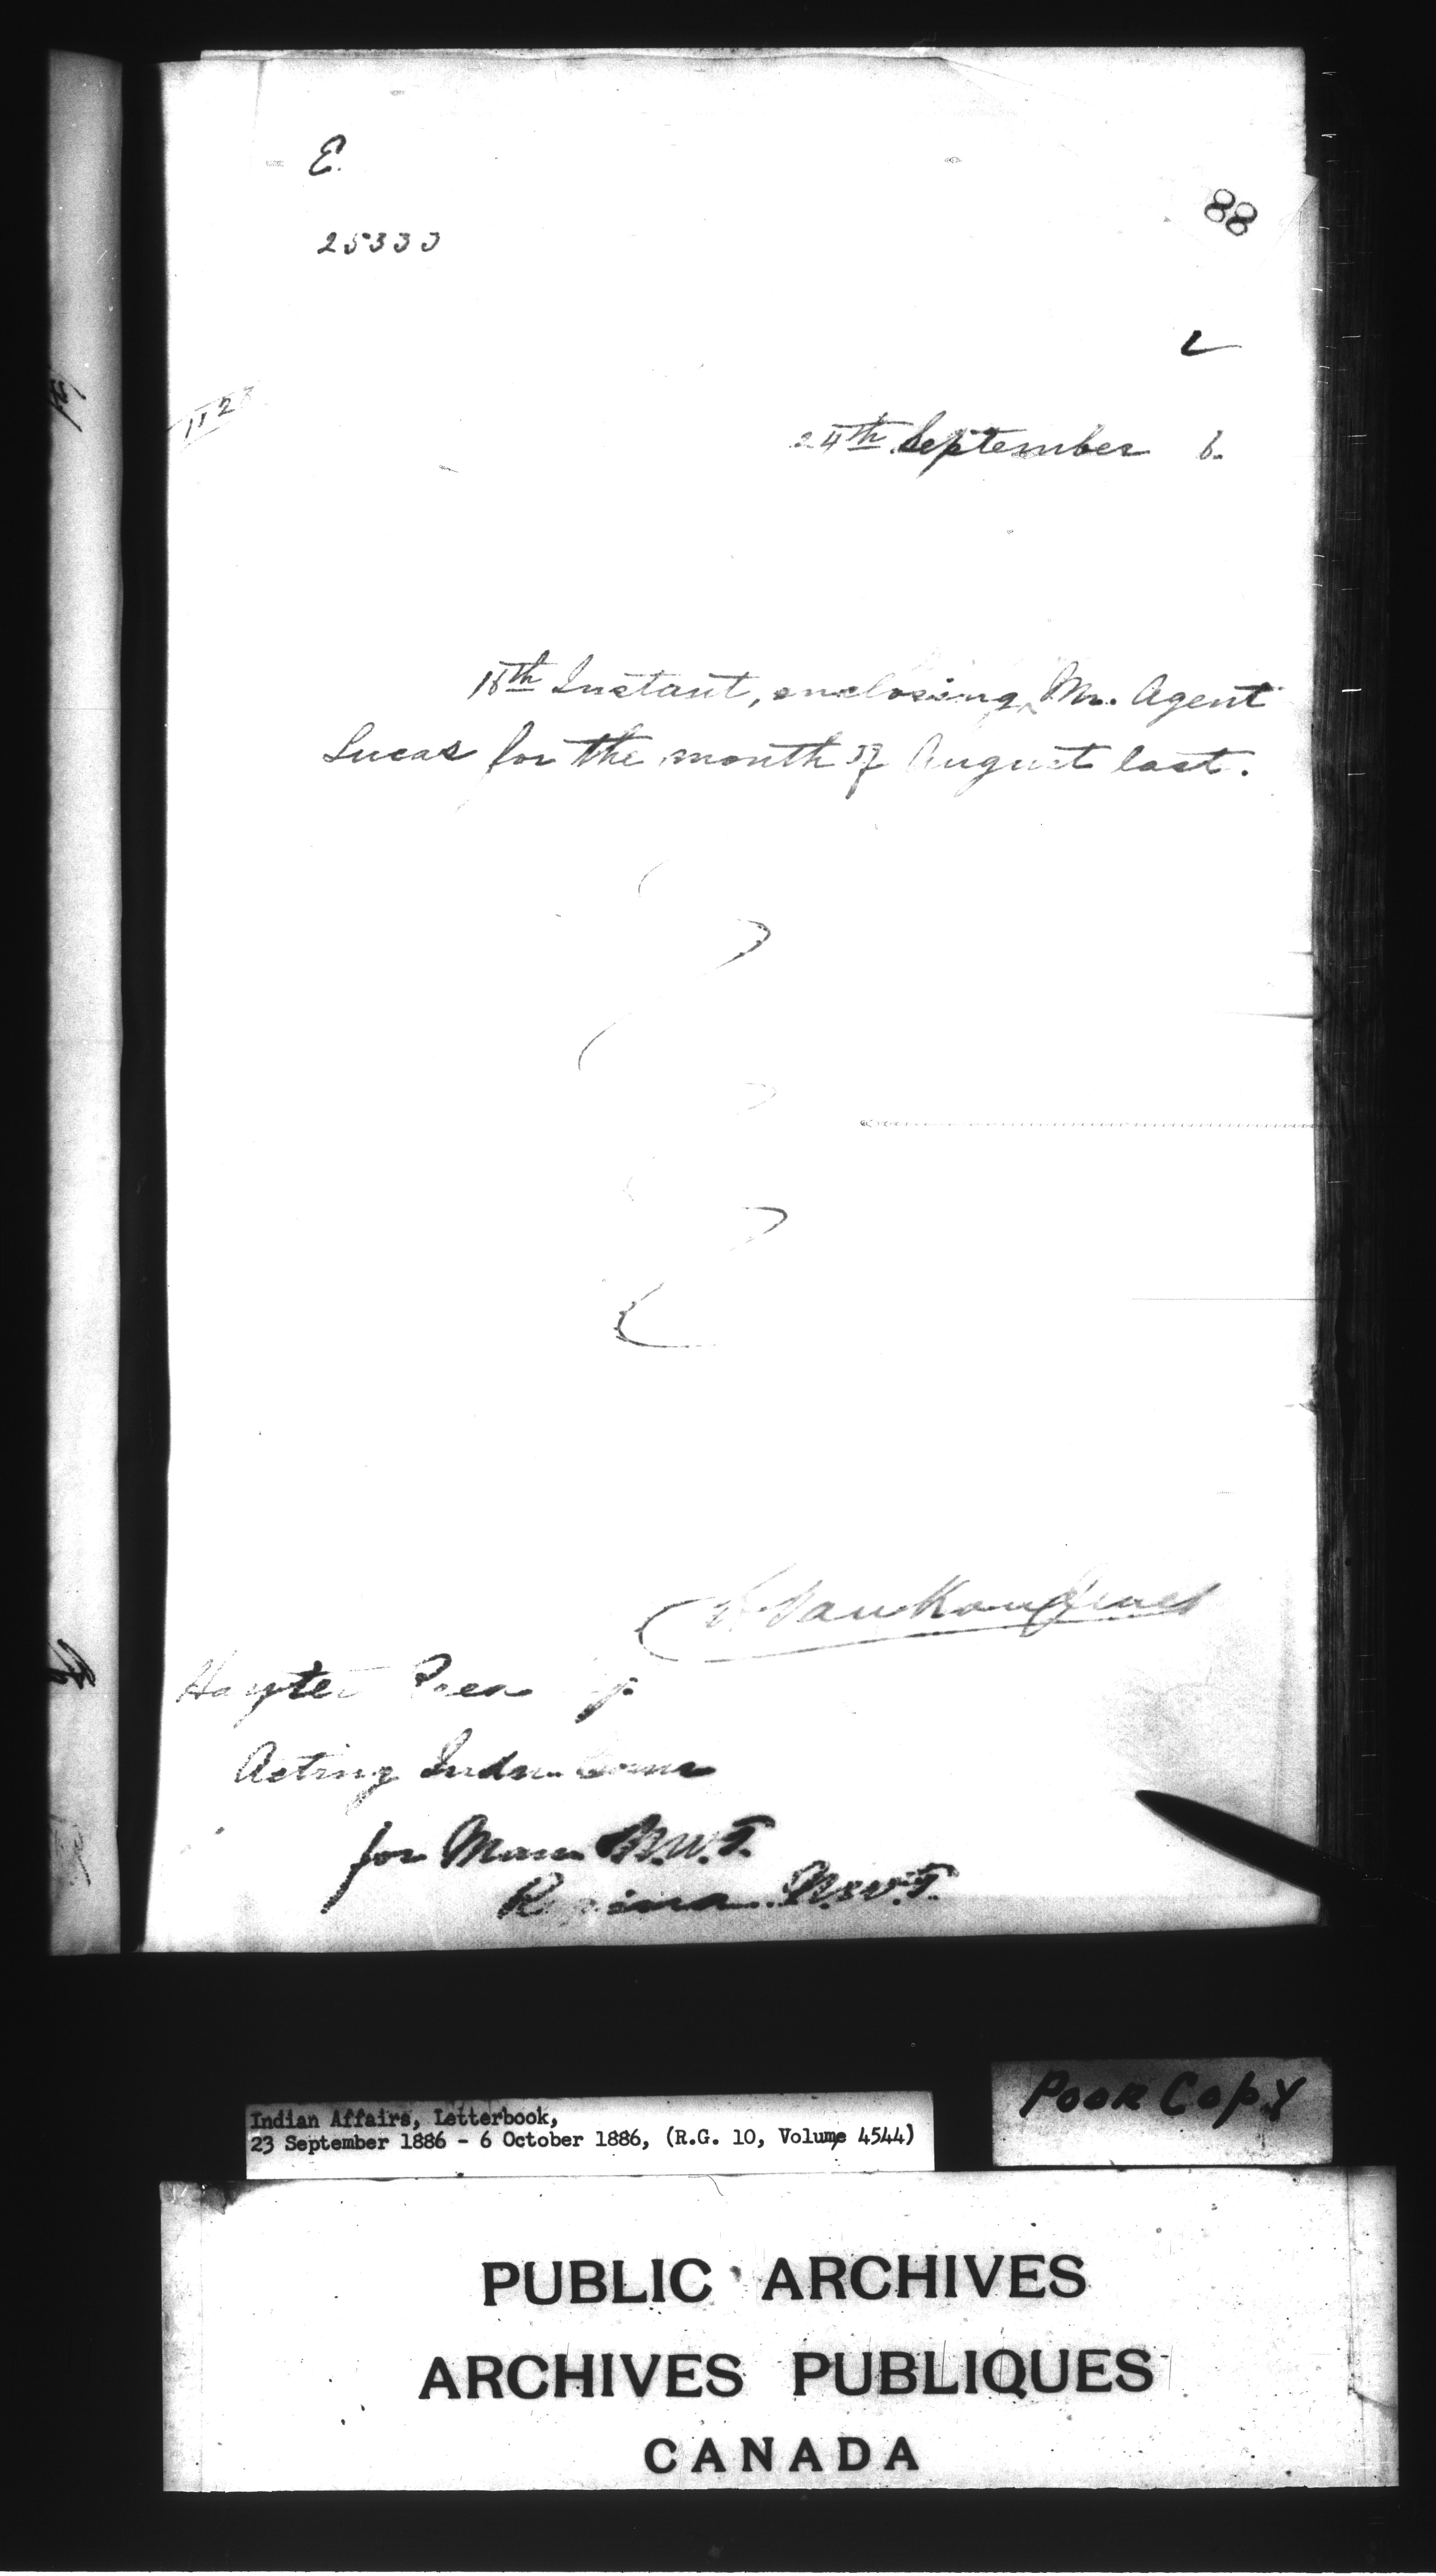 E.
88
25333
1128
24th September 6.
18th Instant, enclosing Mr. Agent
Lucas for the month of August last.
L. VanKoughnet
Hayter Reed
Acting Indn. Comr
for Man N.W.T.
Regina N.W.T.
Poor Copy
Indian Affairs, Letterbook,
23 September 1886 - 6 October 1886, (R.G. 10, Volume 4544)
PUBLIC ARCHIVES
ARCHIVES PUBLIQUES
CANADA